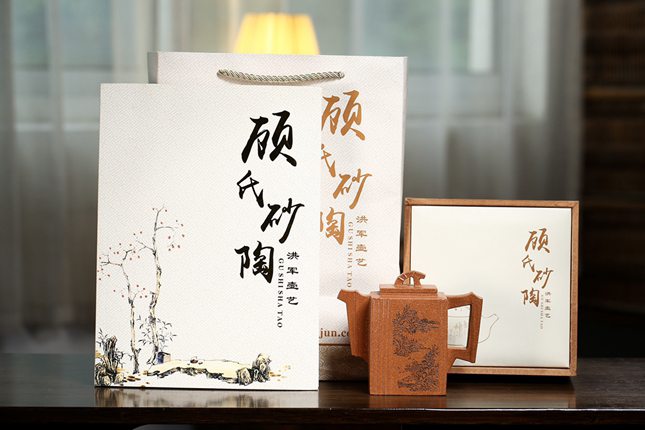 顾氏砂陶
洪军壶艺
GU SHI SHA TAO
顾氏砂陶
洪军壶艺
GU SHI SHA TAO
jun.co
顾氏砂陶
洪军壶艺
GU SHI SHA TAO